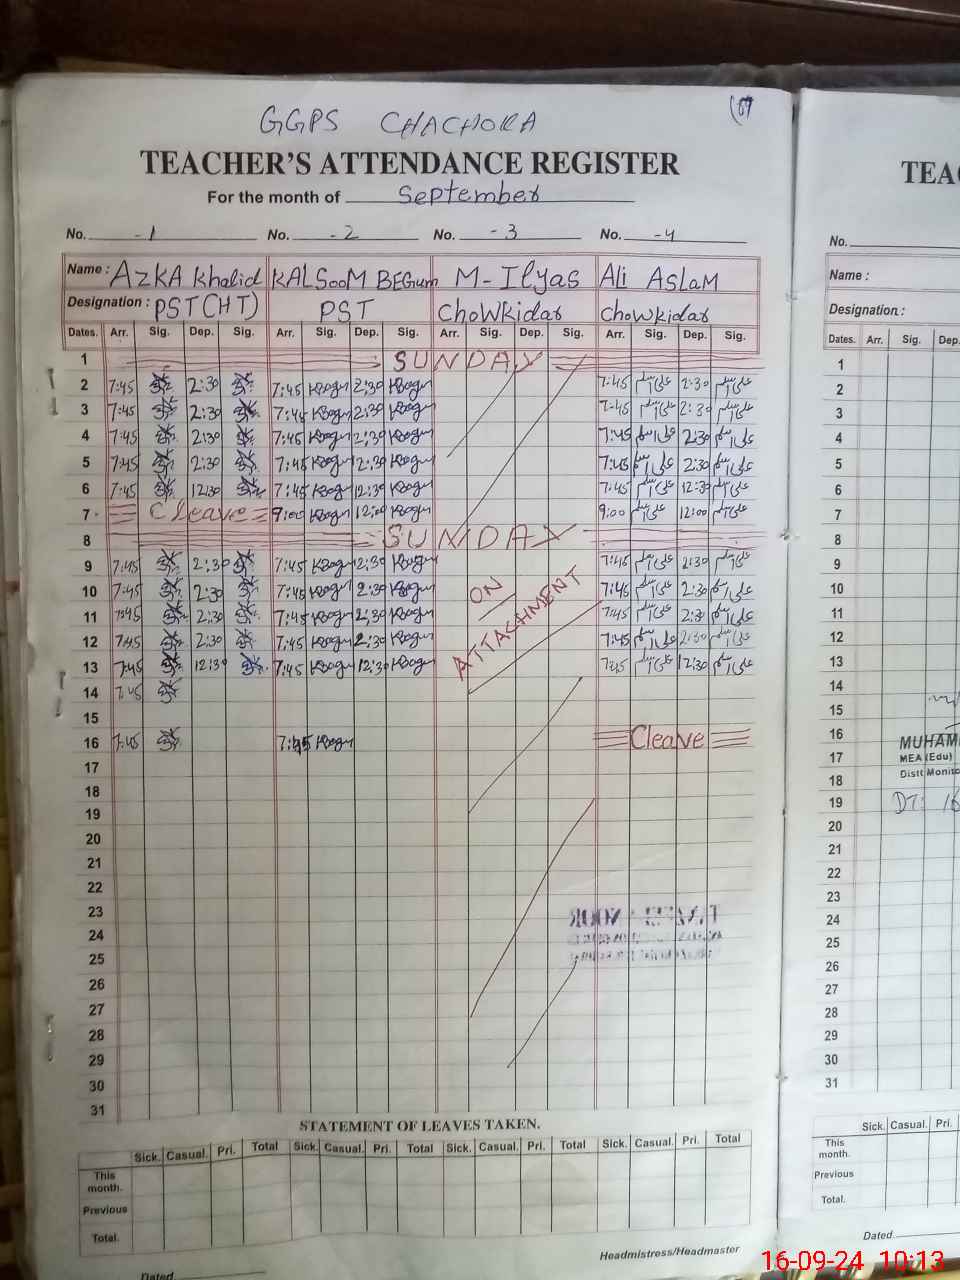 GGPS CHACHORA
TEACHER'S ATTENDANCE REGISTER
For the month of September
No. -1 No. -2 No. -3 No. -4
Name : AZKA Khalid KALSOOM BEGUM M-Ilyas Ali ASLAM
Designation : PST(HT) PST Chowkidar Chowkidar
Dates. Arr. Sig. Dep. Sig. Arr. Sig. Dep. Sig. Arr. Sig. Dep. Sig. Arr. Sig. Dep. Sig.
1 SUNDAY
2 7:45 2:30 7:45 KBegum 2:30 KBegum 7:45 علی اسلم 2:30 علی اسلم
3 7:45 2:30 7:45 KBegum 2:30 KBegum 7:45 علی اسلم 2:30 علی اسلم
4 7:45 2:30 7:45 KBegum 2:30 KBegum 7:45 علی اسلم 2:30 علی اسلم
5 7:45 2:30 7:45 KBegum 2:30 KBegum 7:45 علی اسلم 2:30 علی اسلم
6 7:45 12:30 7:45 KBegum 12:30 KBegum 7:45 علی اسلم 12:30 علی اسلم
7 Cleave 9:00 KBegum 12:00 KBegum 9:00 علی اسلم 12:00 علی اسلم
8 SUNDAY
9 7:45 2:30 7:45 KBegum 2:30 KBegum 7:45 علی اسلم 2:30 علی اسلم
10 7:45 2:30 7:45 KBegum 2:30 KBegum ON 7:45 علی اسلم 2:30 علی اسلم
11 7:45 2:30 7:45 KBegum 2:30 KBegum ATTACHMENT 7:45 علی اسلم 2:30 علی اسلم
12 7:45 2:30 7:45 KBegum 2:30 KBegum 7:45 علی اسلم 2:30 علی اسلم
13 7:45 12:30 7:45 KBegum 12:30 KBegum 7:45 علی اسلم 12:30 علی اسلم
14 7:45
15
16 7:45 7:45 KBegum Cleave
17
18
19
20
21
22
23
24
25
26
27
28
29
30
31
STATEMENT OF LEAVES TAKEN.
Sick. Casual. Pri. Total Sick. Casual. Pri. Total Sick. Casual. Pri. Total Sick. Casual. Pri. Total
This month.
Previous
Total.
Headmistress/Headmaster
Dated
TEAC
No.
Name :
Designation :
Dates. Arr. Sig. Dep.
1
2
3
4
5
6
7
8
9
10
11
12
13
14
15
16 MUHAM
17 MEA (Edu)
18 Distt Monito
19 DT: 16
20
21
22
23
24
25
26
27
28
29
30
31
Sick. Casual. Pri.
This month.
Previous
Total.
Dated
16-09-24 10:13